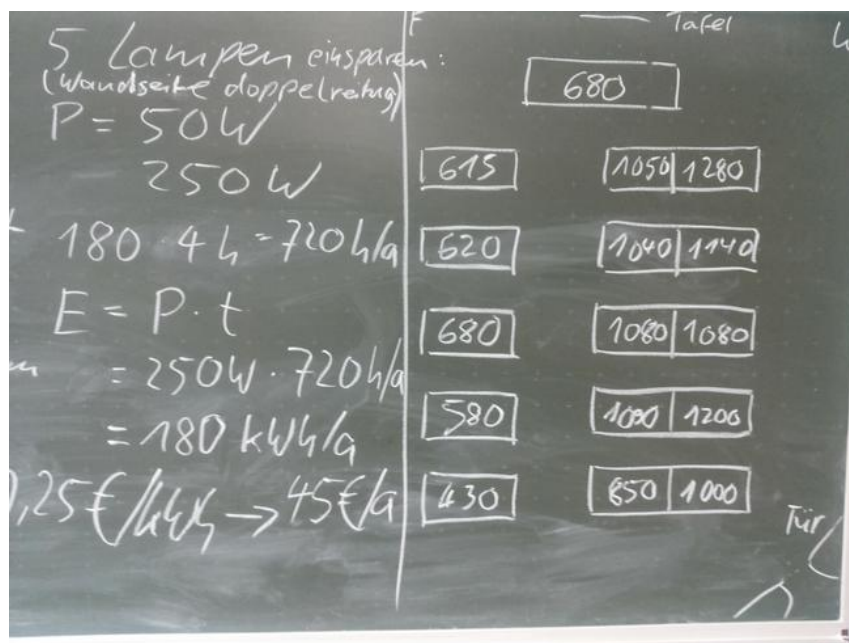 5 Lampen einsparen:
(Wandseite doppelreihig)
P = 50W
250W
180 4h = 720h/a
E = P · t
= 250W · 720h/a
= 180 kWh/a
,25€/kWh → 45€/a
F
Tafel
680
615 1050 1280
620 1040 1140
680 1080 1080
580 1090 1200
430 850 1000
Tür